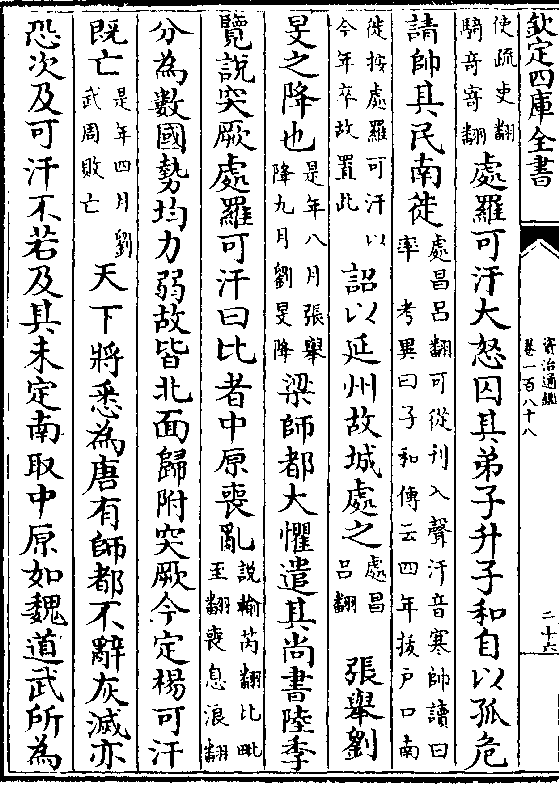 欽定四庫全書
資治通鑑
卷一百八十八
二十六
使疏吏翻
騎奇寄翻
處羅可汗大怒囚其弟子升子和自以孤危
請帥其民南徙
處昌呂翻可從刊入聲汗音寒帥讀曰
率 考異曰子和傳云四年拔戶口南
徙按處羅可汗以
今年卒故置此
詔以延州故城處之
處昌
呂翻
張舉劉
旻之降也
是年八月張舉
降九月劉旻降
梁師都大懼遣其尚書陸季
覽說突厥處羅可汗曰比者中原喪亂
說輸芮翻比毗
至翻喪息浪翻
分為數國勢均力弱故皆北面歸附突厥今定楊可汗
既亡
是年四月劉
武周敗亡
天下將悉為唐有師都不辭灰滅亦
恐次及可汗不若及其未定南取中原如魏道武所為